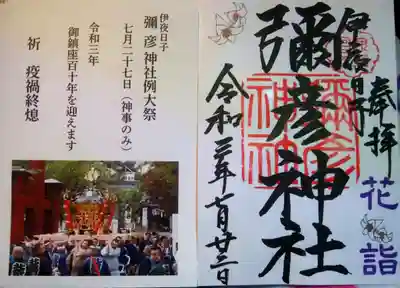 奉拝
花詣
伊夜日子
彌彦神社
令和三年七月廿三日
伊夜日子
彌彦神社例大祭
七月二十七日（神事のみ）
令和三年
御鎮座百十年を迎えます
祈 疫禍終熄